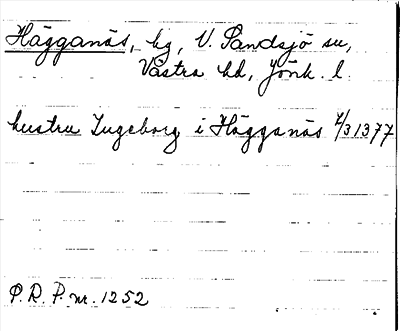 Hägganäs, by, V. Sandsjö sn,
Västra hd, Jönk. l.
hustru Ingeborg i Hägganäs 7/3 1377
P.R.P. nr. 1252